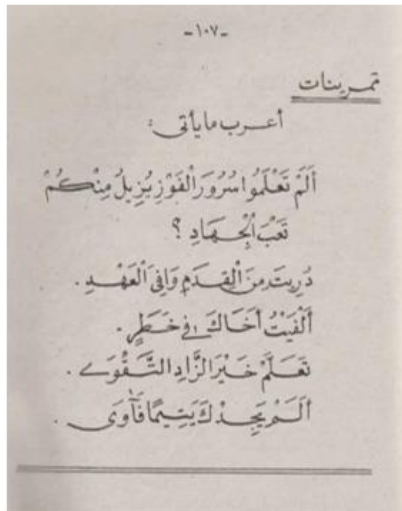 -١٠٧-
تمرينات
أعرب ما يأتى :
أَلَمْ تَعْلَمُوا سُرُورَ الْفَوْزِ يُزِيلُ مِنْكُمْ
تَعَبَ الْجِهَادِ ؟
دُرِيتَ مِنَ الْقِدَمِ وَافِيَ الْعَهْدِ .
أَلْفَيْتُ أَخَاكَ فِي خَطَرٍ .
تَعَلَّمْ خَيْرَ الزَّادِ التَّقْوَى .
أَلَمْ يَجِدْكَ يَتِيمًا فَآوَى .